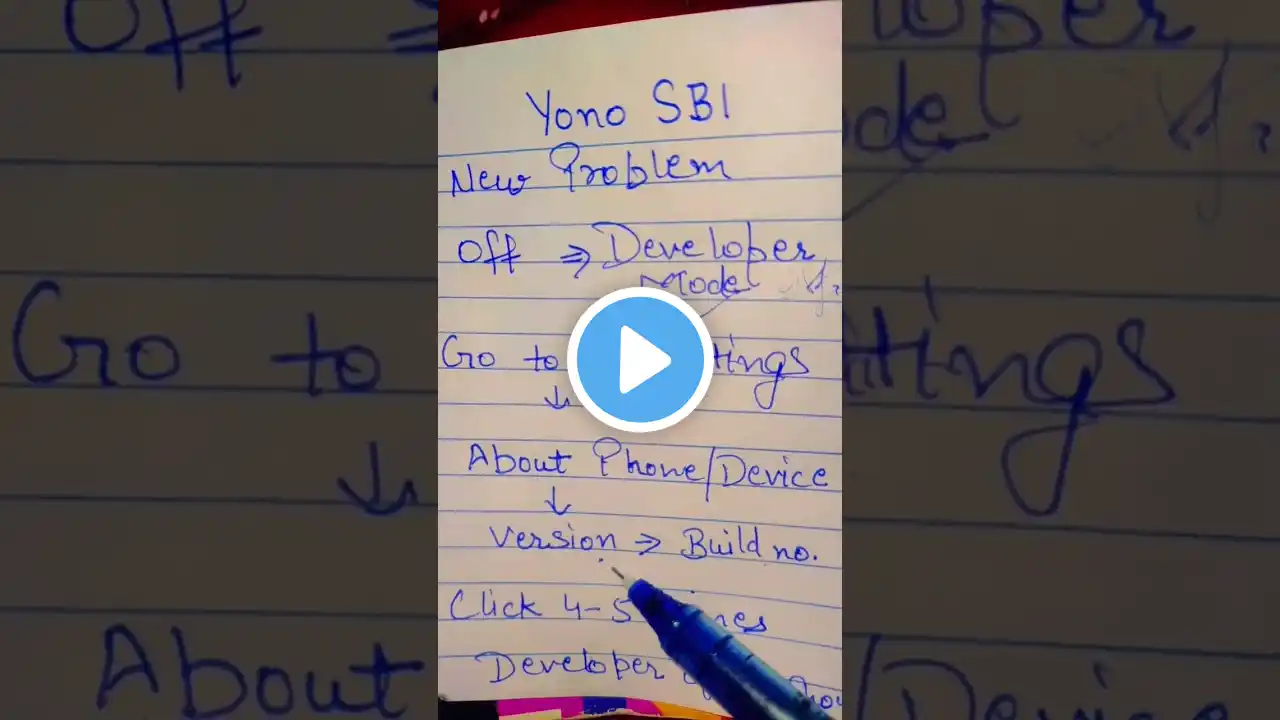 Yono SBI
New Problem
Off ⇒ Developer
Mode
Go to ttings
↓
About Phone/Device
↓
Version ⇒ Build no.
Click 4-5
Developer